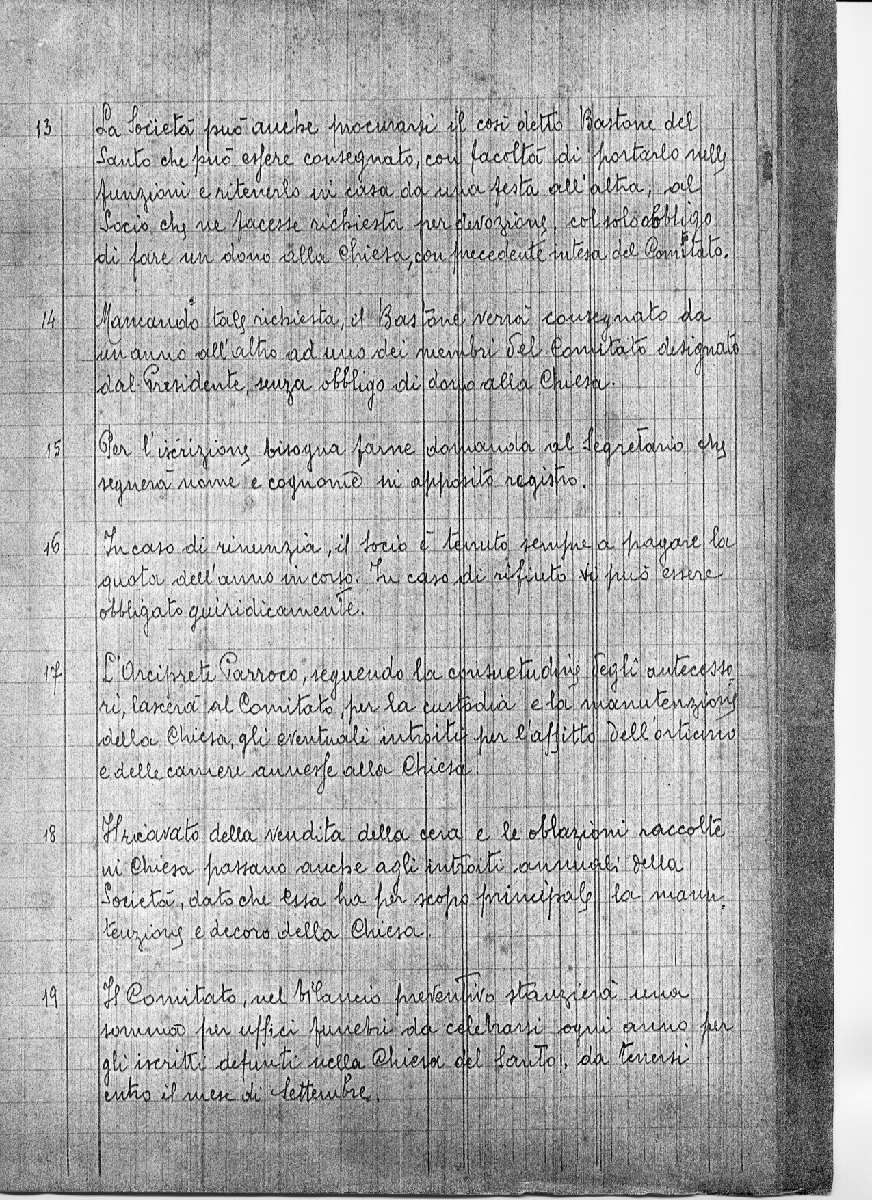 13 La Società può anche procurarsi il così detto Bastone del
Santo che può essere consegnato, con facoltà di portarlo nelle
funzioni e ritenerlo in casa da una festa all'altra, al
Socio che ne facesse richiesta per devozione, col solo obbligo
di fare un dono alla Chiesa, con precedente intesa del Comitato.
14 Mancando tale richiesta, il Bastone verrà consegnato da
un anno all'altro ad uno dei membri del Comitato designato
dal Presidente, senza obbligo di dono alla Chiesa.
15 Per l'iscrizione bisogna farne domanda al Segretario che
segnerà nome e cognome in apposito registro.
16 In caso di rinunzia, il socio è tenuto sempre a pagare la
quota dell'anno in corso. In caso di rifiuto vi può essere
obbligato guiridicamente.
17 L'Arciprete Parroco, seguendo la consuetudine degli antecesso
ri, lascerà al Comitato, per la custodia e la manutenzione
della Chiesa, gli eventuali introiti per l'affitto dell'orticino
e delle camere annesse alla Chiesa.
18 Il ricavato della vendita della cera e le oblazioni raccolte
in Chiesa passano anche agli introiti annuali della
Società, dato che essa ha per scopo principale la manu,
tenzione e decoro della Chiesa.
19 Il Comitato, nel bilancio preventivo stanzierà una
somma per uffici funebri da celebrarsi ogni anno per
gli iscritti defunti nella Chiesa del Santo, da tenersi
entro il mese di Settembre.